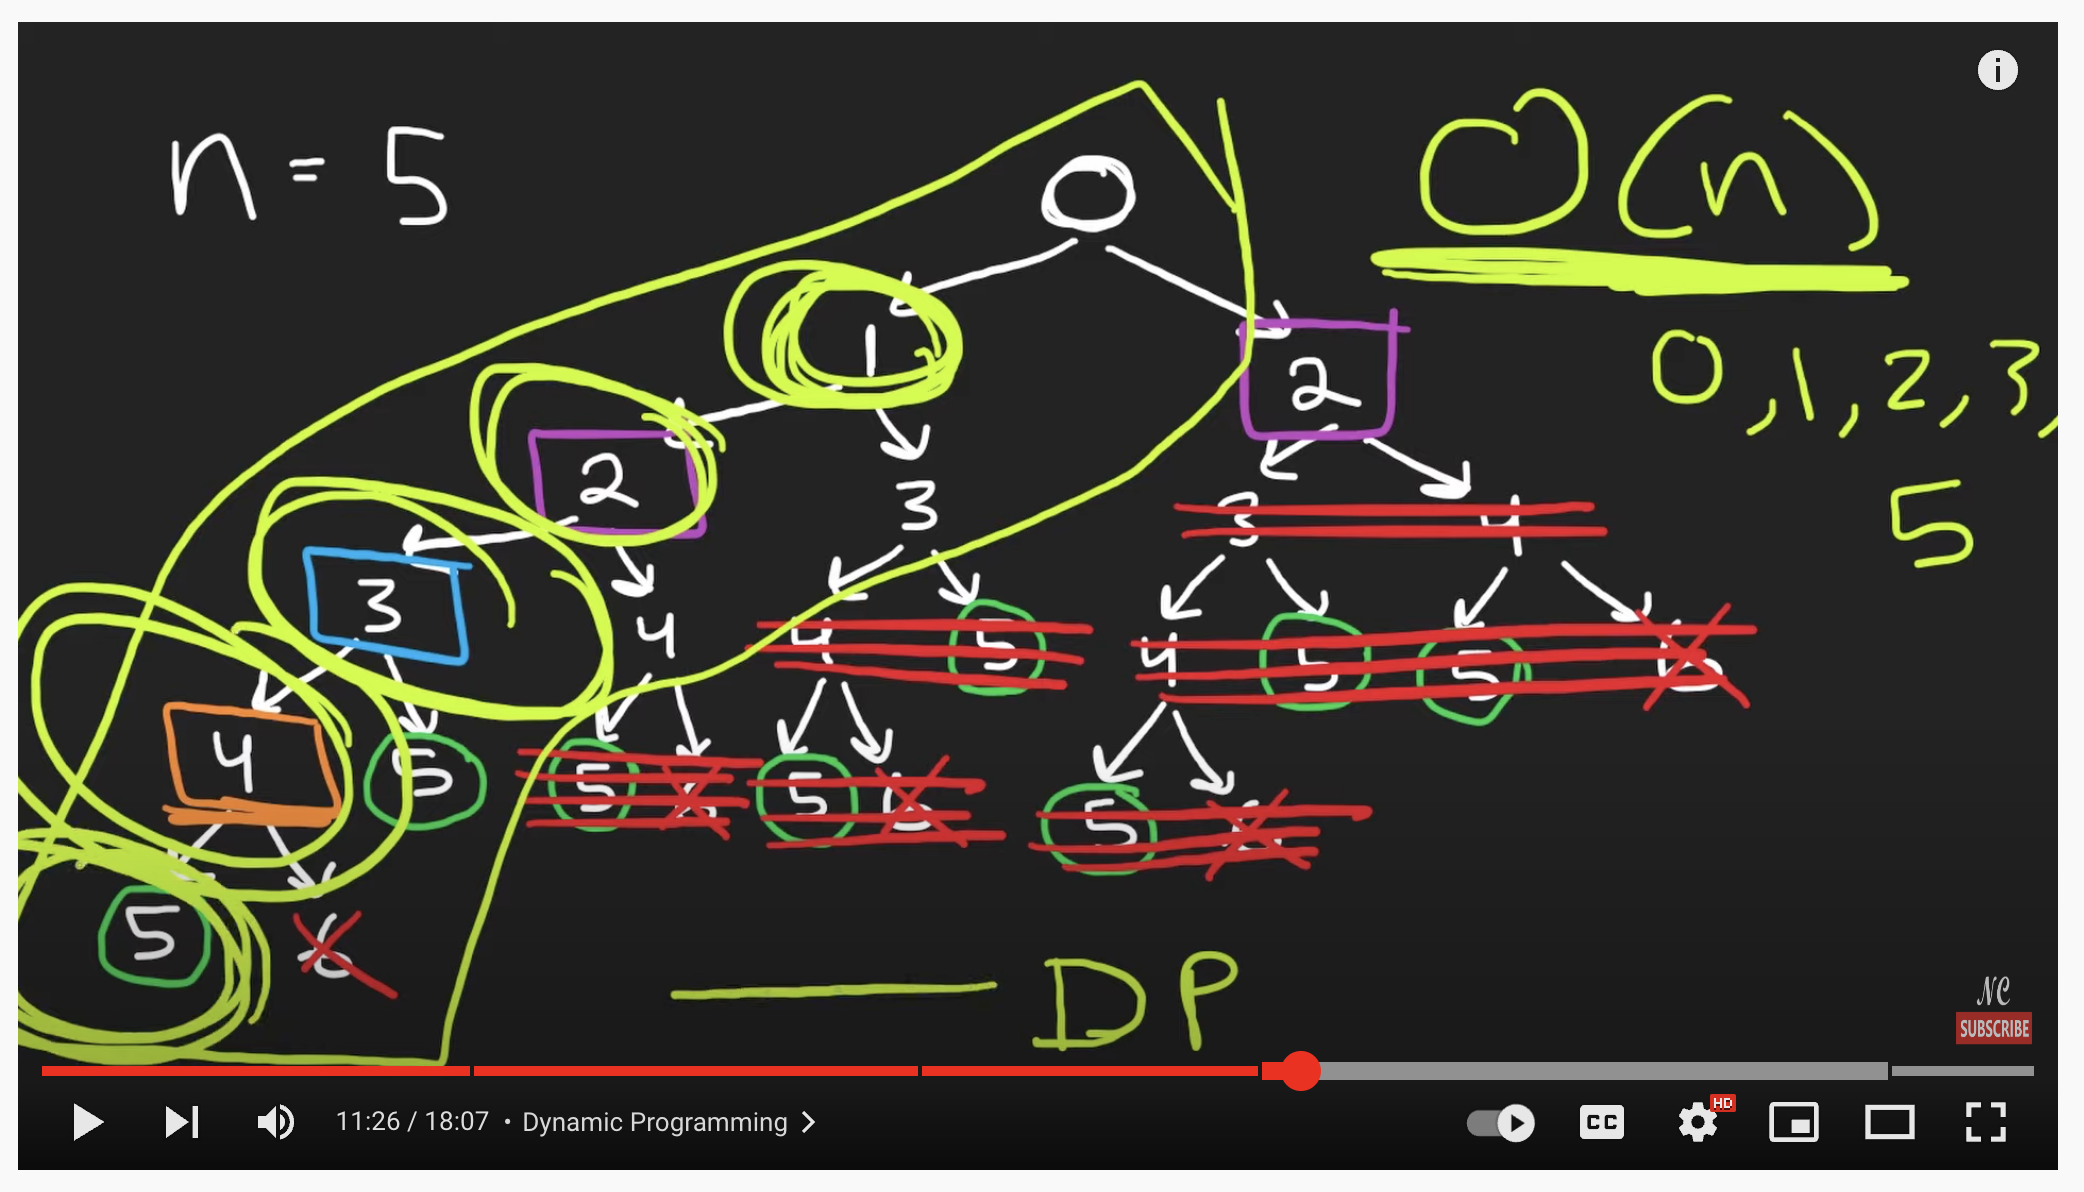 n = 5
O(n)
0
1
2
0, 1, 2, 3,
5
2
3
3
4
3
4
4
5
4
5
5
6
4
5
5
6
5
6
5
6
5
6
DP
NC
SUBSCRIBE
11:26 / 18:07 • Dynamic Programming >
CC
HD